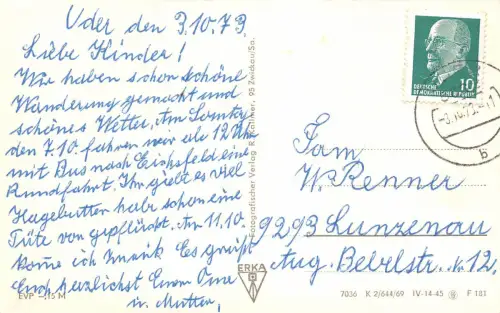 Uder den 3.10.73.
Liebe Kinder!
Wir haben schon schöne
Wanderung gemacht und
schönes Wetter. Am Sonntg
den 7.10. fahren wir ab 12 Uhr
mit Bus nach Eichsfeld eine
Rundfahrt. Ihr giebt es viel
Hagebutten habe schon eine
Tüte von gepflückt. Am 11.10.
kome ich Es grüßt
Euch herzlichst Eure Oma
u. Mutter,
EVP -,15 M
Fotografischer Verlag R. 95 Zwickau/Sa.
ERKA
DEUTSCHE
DEMOKRATISCHE REPUBLIK
10
b
Fam
W. Renner
9293 Lunzenau
Aug. Bebelstr. K. 12,
7036 K 2/644/69 IV-14-45 F 181